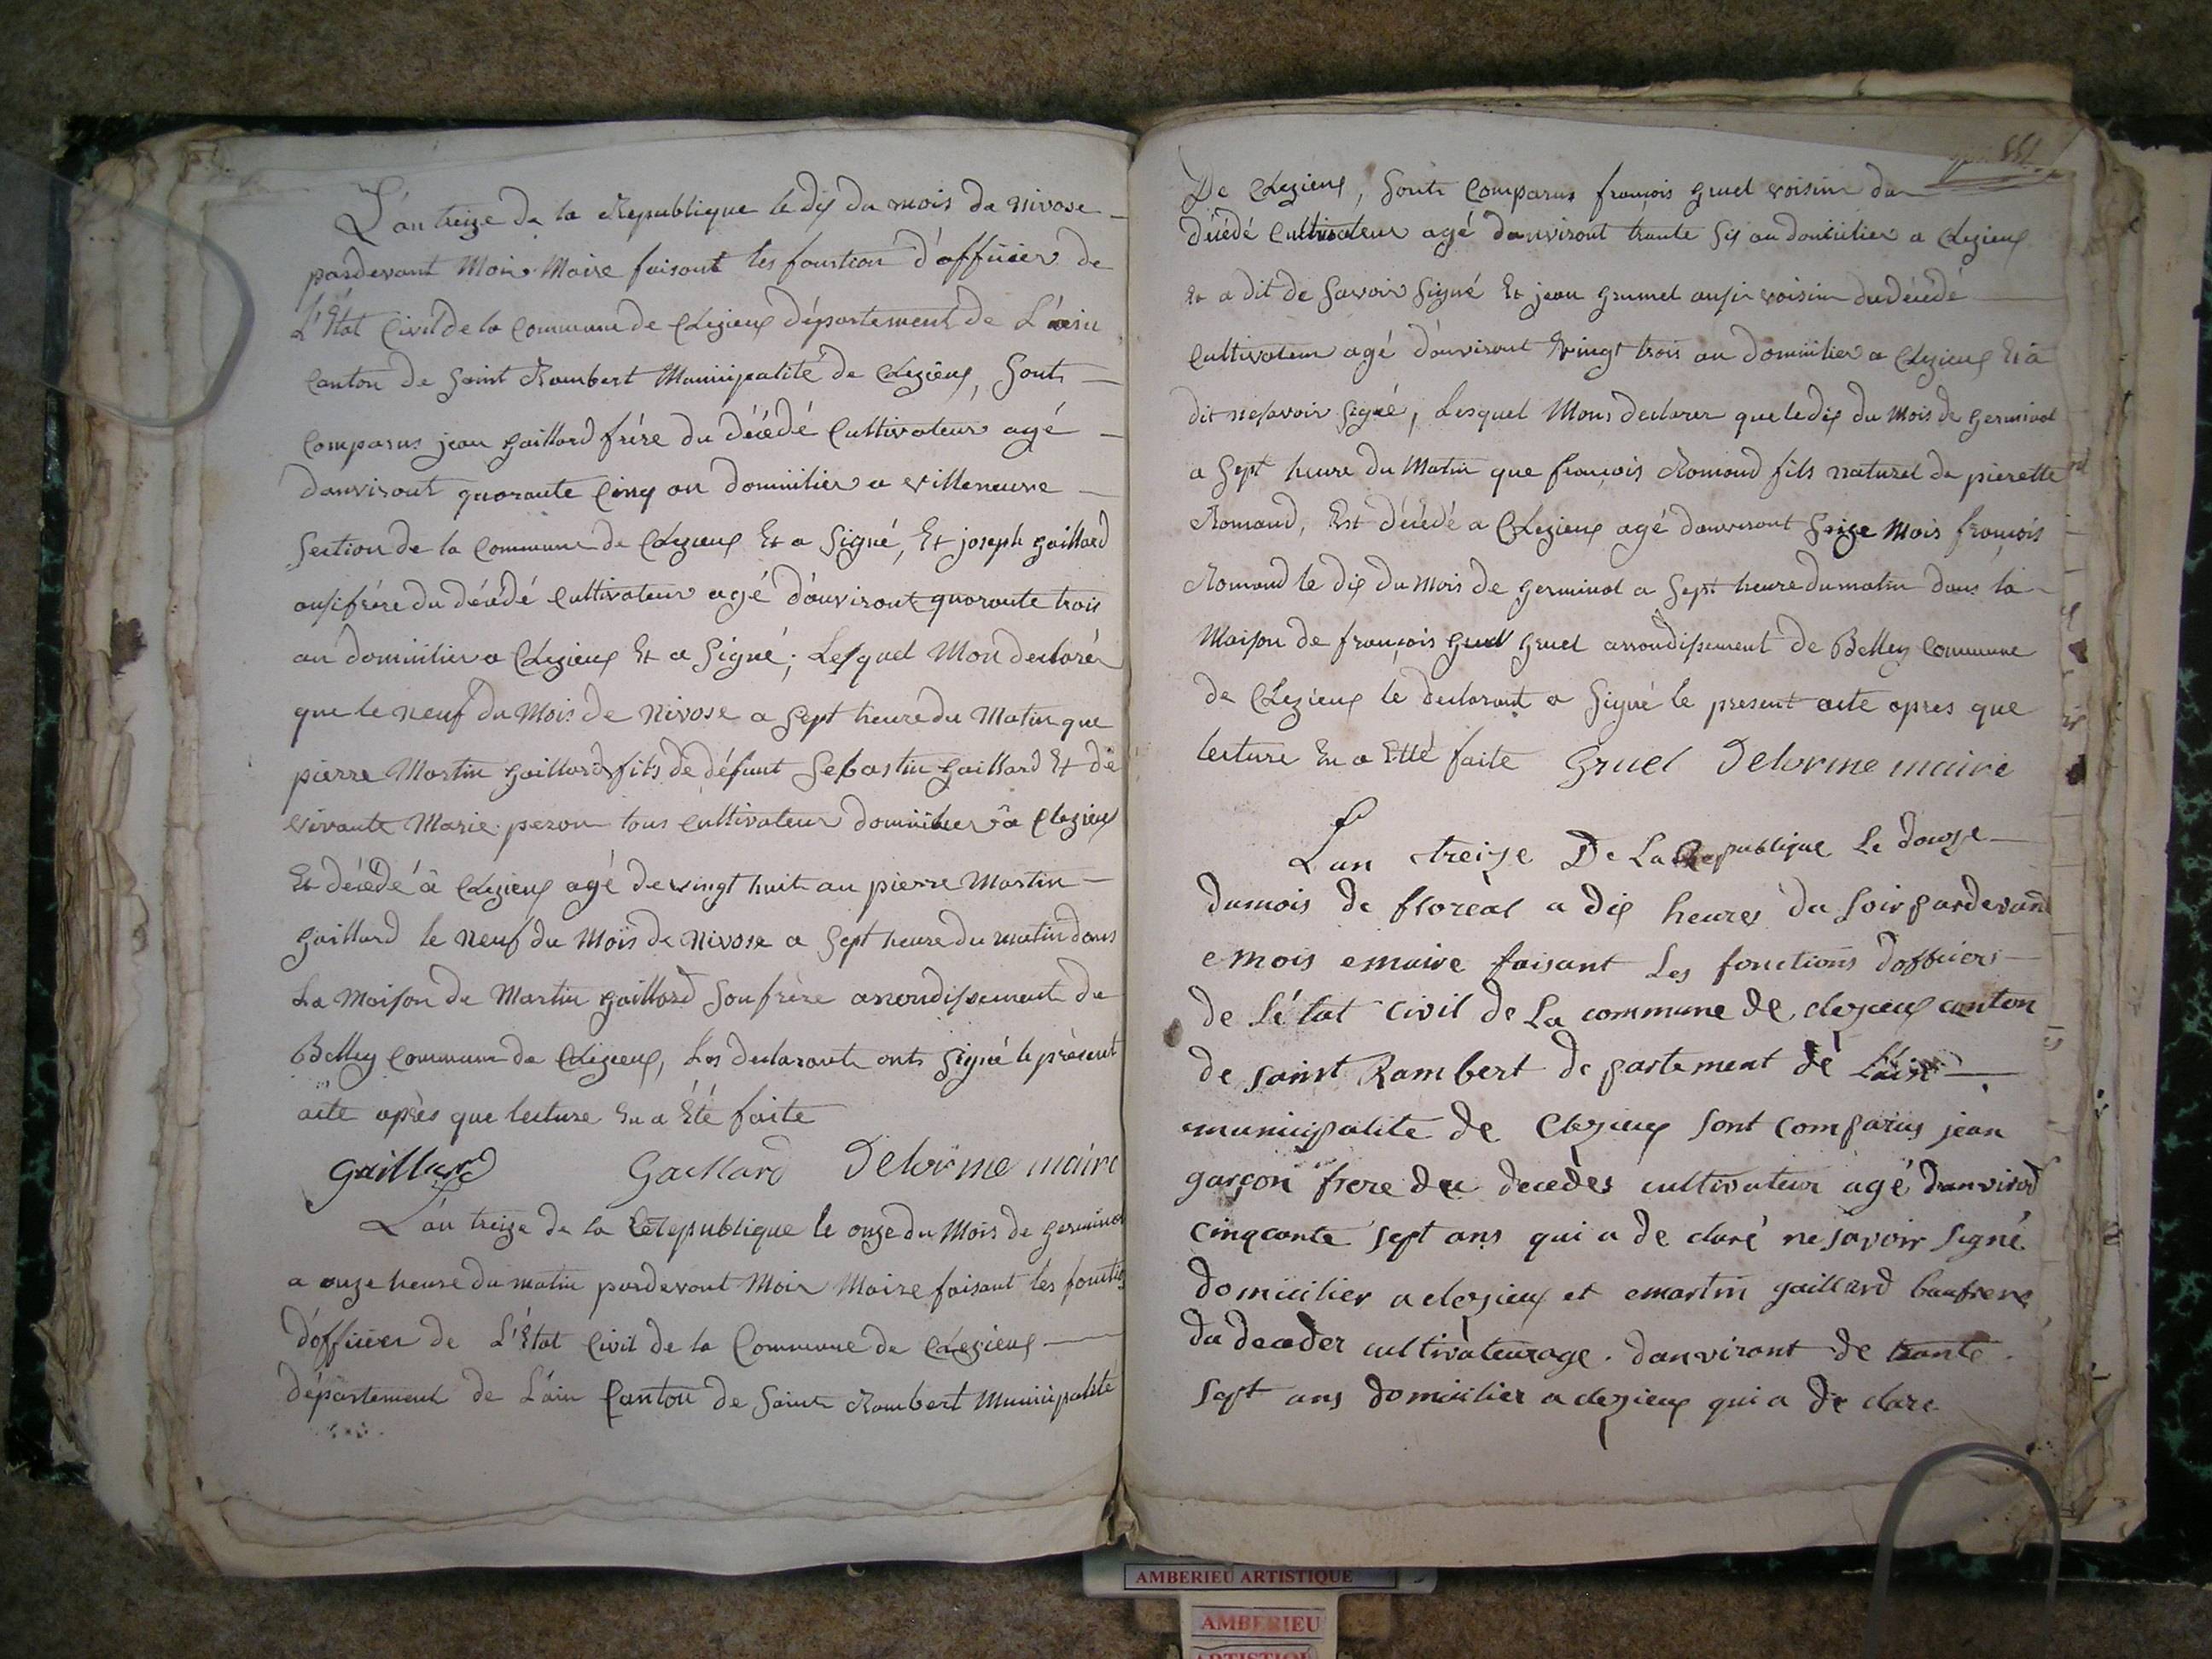 L'an treize de la Republique le dix du mois de nivose
pardevant Moi Maire faisant les fonction d'officier de
L'État Civil de la Commune de Clezieux département de L'ain
Canton de Saint Rambert Municipalité de Clezieux, Sont
Comparus jean gaillard frére du décédé Cultivateur agé
danviront quarante Cinq an domicilier a villeneuve
Section de la Commune de Clezieux Et a Signé, Et joseph gaillard
ausi frére du décédé Cultivateur agé d'anviront quarante trois
an domicilier a Clezieux Et a Signé; Lesquel Mon declarér
que le neuf du Mois de Nivose a Sept heure du Matin que
pierre Martin gaillard fils de défunt Sebastin gaillard Et de
vivante Marie pezon tous Cultivateur domicilier à Clezieux
Et décédé à Clezieux agé de vingt huit an pierre Martin
gaillard le neuf du Mois de Nivose a Sept heure du matin dans
La Maison de Martin gaillard Son frère arrondisement de
Belley Commune de Clezieux, Les declarant ont Signé le présent
acte après que lecture En a Été faite
gaillard Gaillard Delorme maire
L'an treize de la Republique le onze du Mois de germinal
a onze heure du matin pardevant Moi Maire faisant les fonction
d'officier de L'État Civil de la Commune de Clezieux
département de L'ain Canton de Saint Rambert Municipalité
De Clezieux, Sont Comparus françois gruel voisin du
décédé Cultivateur agé danviront trante Six an domicilier a Clezieux
Et a dit de Savoir Signé Et jean grumel ausi voisin du décédé
Cultivateur agé d'anviront Vingt trois an domicilier a Clezieux Et a
dit ne Savoir Signé, Lesquel Mons declarer que le dix du Mois de germinal
a Sept heure du Matin que françois Romand fils naturel de pierette
Romand, Est décédé a Clezieux agé danviront Seize Mois françois
Romand le dix du Mois de germinal a Sept heure du matin dans la
Maison de françois gruel gruel arrondisement de Belley Commune
de Clezieux le declarant a Signé le present acte apres que
lecture En a Etté faite Gruel Delorme maire
Lan treize De La Republique Le douze
du mois de floréal a dix heures du Soir pardevant
mois maire faisant Les fonctions dofficiers
de L'état Civil de La commune de clezieux canton
de saint Rambert departement dé Lain
municipalite de Clezieux Sont Comparus jean
garçon frere du decedes cultivateur agé danviront
Cinqcante Sept ans qui a de claré ne savoir Signé
domicilier a clezieux et martin gaillard baufrere
du deceder cultivateur age danviront de trante
Sept ans domicilier a clezieux qui a de clare
AMBERIEU ARTISTIQUE
AMBERIEU
ARTISTIQUE